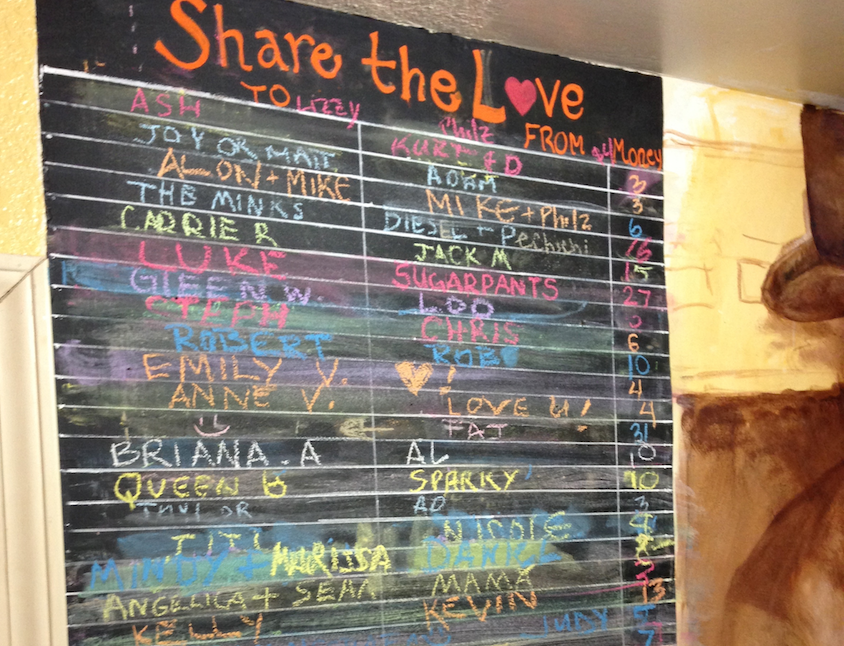 Share the Love
TO FROM Money
ASH Lizzy Philz
JOY OR MATT KURT + D 3
ALON + MIKE ADAM 3
THE MINKS MIKE + Philz 6
CARRIE R DIESEL + Pechichi
LUKE JACK M 15
GLEEN W. SUGARPANTS 27
STEPH LOD
ROBERT CHRIS 6
EMILY V. ROB 10
ANNE V. ! 4
LOVE U! 4
TAJ 31
BRIANA. A AL 10
QUEEN B SPARKY 10
AD 3
TITI NICOLE
MINDY + MARISSA DANICA
ANGELICA + SEAN MAMA 13
KELLY KEVIN
JUDY 7